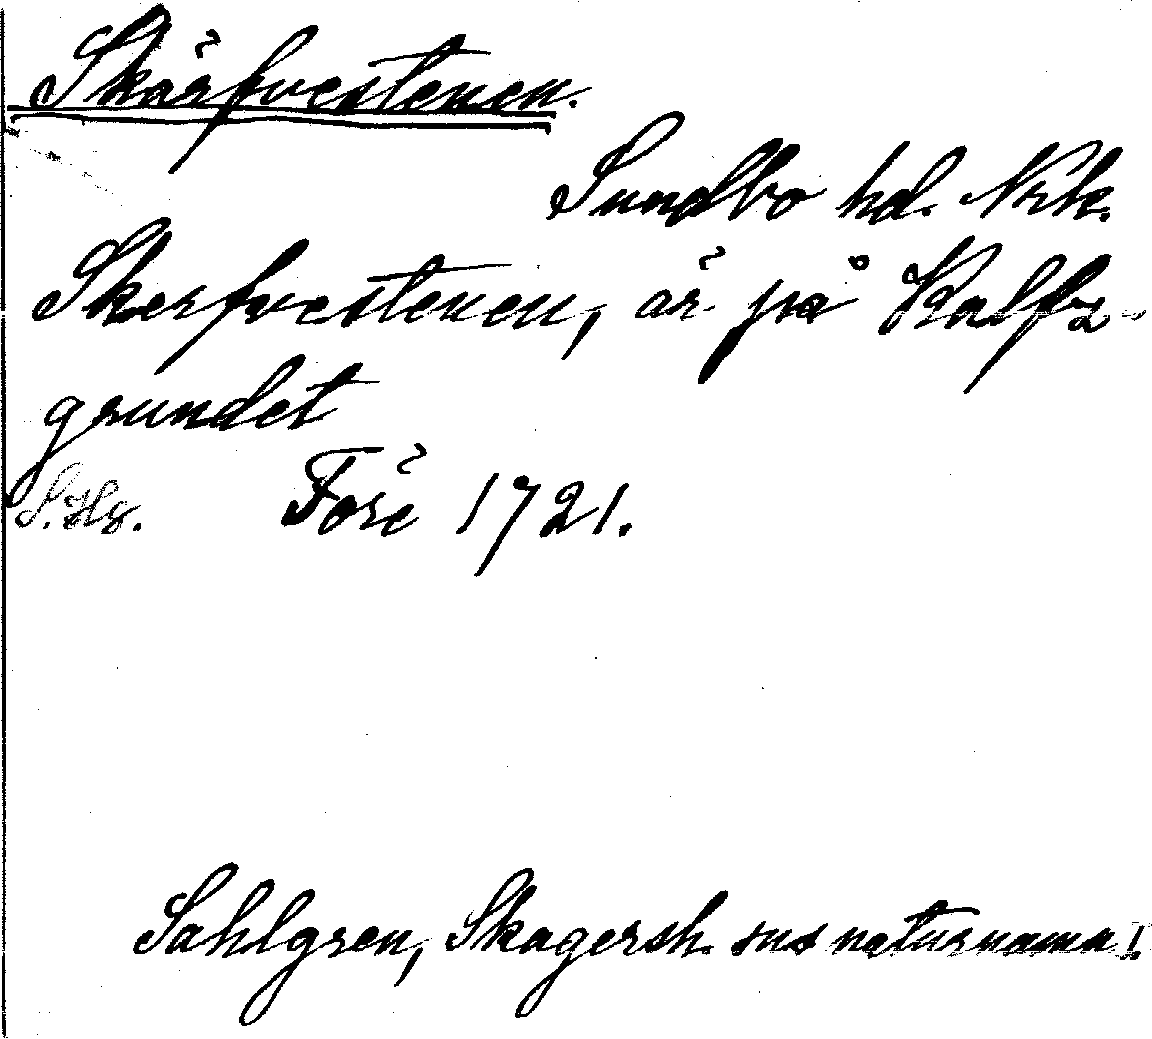 Skärfvestenen.
Sundbo hd. Nrk.
Skerfvestenen, är på Kalfs-
grundet
S.Hg. Före 1721.
Sahlgren, Skagersh. sns naturnamn I.